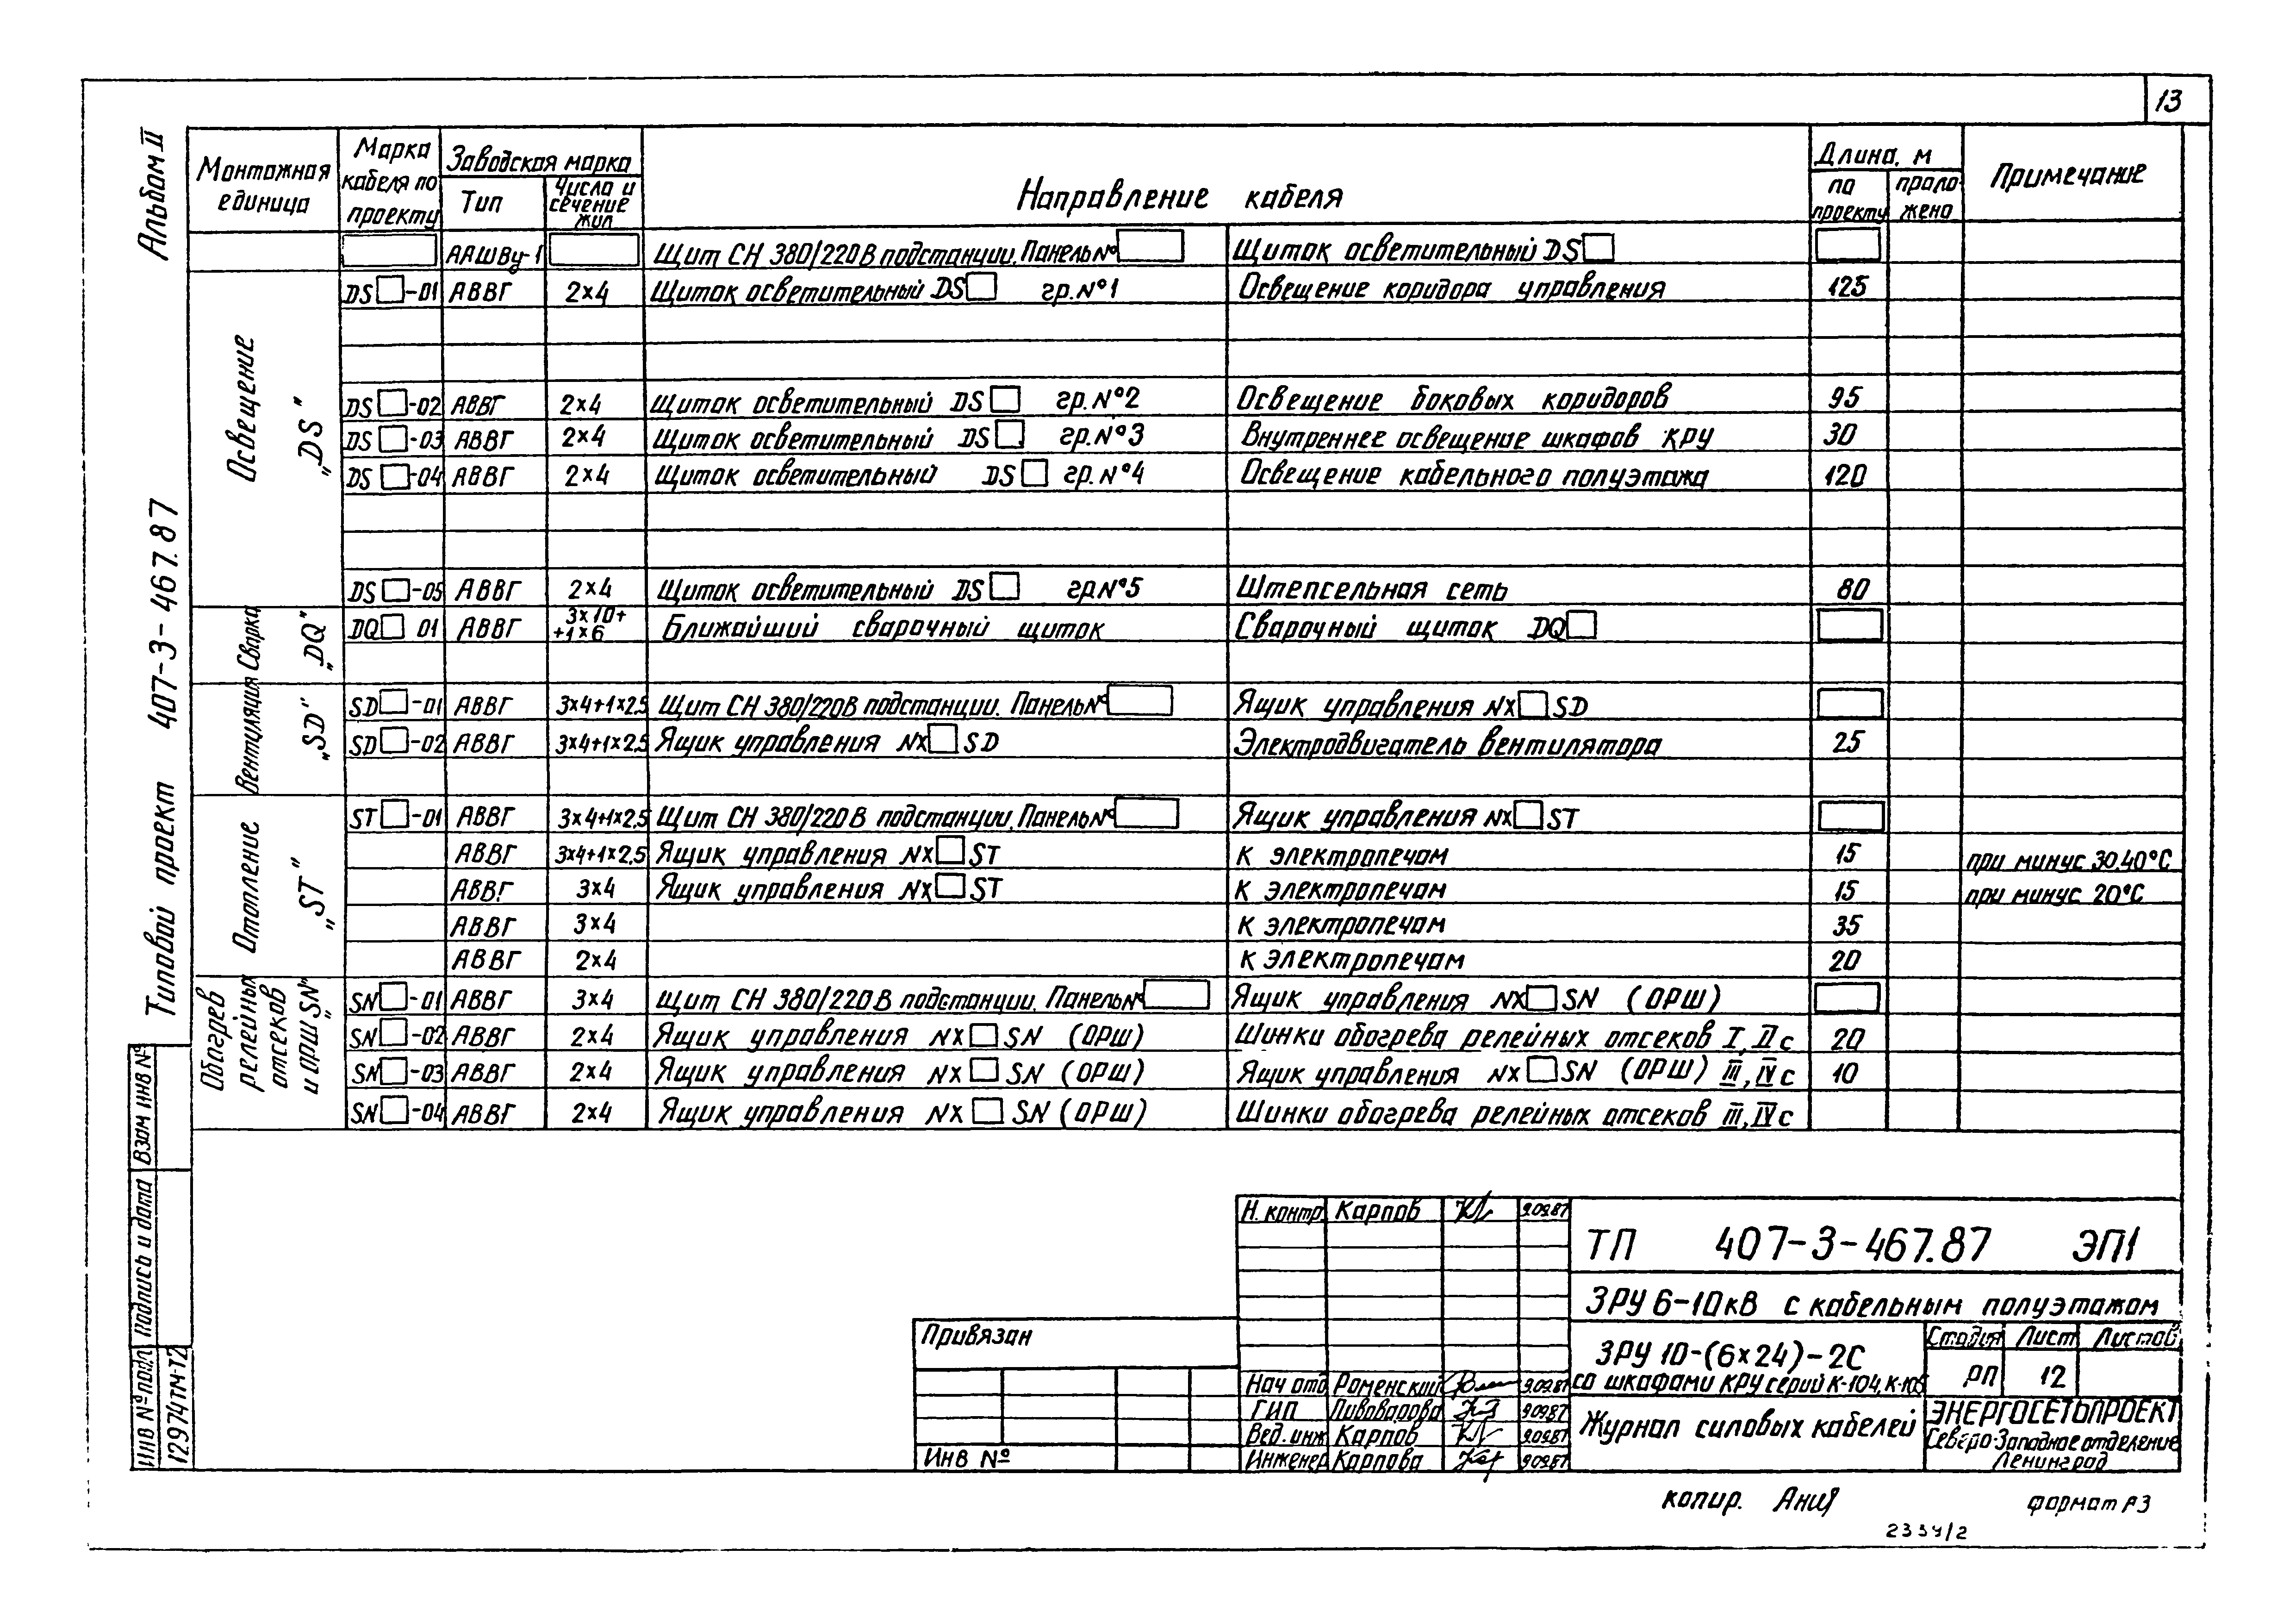 13
Альбом II
Типовой проект 407-3-467.87
Монтажная единица | Марка кабеля по проекту | Заводская марка | Направление кабеля | Длина, м | Примечание
Тип | Число и сечение жил | по проекту | проложено
ААШВу-1 | Щит СН 380/220В подстанции. Панель № | Щиток осветительный DS
Освещение „DS"
DS -01 | АВВГ | 2×4 | Щиток осветительный DS гр.№1 | Освещение коридора управления | 125
DS -02 | АВВГ | 2×4 | Щиток осветительный DS гр.№2 | Освещение боковых коридоров | 95
DS -03 | АВВГ | 2×4 | Щиток осветительный DS гр.№3 | Внутреннее освещение шкафов КРУ | 30
DS -04 | АВВГ | 2×4 | Щиток осветительный DS гр.№4 | Освещение кабельного полуэтажа | 120
DS -05 | АВВГ | 2×4 | Щиток осветительный DS гр.№5 | Штепсельная сеть | 80
Сварка „DQ"
DQ 01 | АВВГ | 3×10+ +1×6 | Ближайший сварочный щиток | Сварочный щиток DQ
Вентиляция „SD"
SD -01 | АВВГ | 3×4+1×2,5 | Щит СН 380/220В подстанции. Панель № | Ящик управления NX SD
SD -02 | АВВГ | 3×4+1×2,5 | Ящик управления NX SD | Электродвигатель вентилятора | 25
Отопление „ST"
ST -01 | АВВГ | 3×4+1×2,5 | Щит СН 380/220В подстанции. Панель № | Ящик управления NX ST
АВВГ | 3×4+1×2,5 | Ящик управления NX ST | К электропечам | 15 | при минус 30,40°С
АВВГ | 3×4 | Ящик управления NX ST | К электропечам | 15 | при минус 20°С
АВВГ | 3×4 | К электропечам | 35
АВВГ | 2×4 | К электропечам | 20
Обогрев релейных отсеков и ОРШ „SN"
SN -01 | АВВГ | 3×4 | Щит СН 380/220В подстанции. Панель № | Ящик управления NX SN (ОРШ)
SN -02 | АВВГ | 2×4 | Ящик управления NX SN (ОРШ) | Шинки обогрева релейных отсеков I, II с | 20
SN -03 | АВВГ | 2×4 | Ящик управления NX SN (ОРШ) | Ящик управления NX SN (ОРШ) III, IV с | 10
SN -04 | АВВГ | 2×4 | Ящик управления NX SN (ОРШ) | Шинки обогрева релейных отсеков III, IV с
Взам инв №
Подпись и дата
Инв № подл.
12974тм-т2
Привязан
Инв №
Н. контр. Карпов 9.09.87
Нач отд Роменский 9.09.87
ГИП Пивоварова 9.09.87
Вед. инж Карпов 9.09.87
Инженер Карпова 9.09.87
ТП 407-3-467.87 ЭП1
ЗРУ 6-10кВ с кабельным полуэтажом
ЗРУ 10-(6×24)-2С
со шкафами КРУ серий К-104, К-105
Стадия Лист Листов
РП 12
Журнал силовых кабелей
ЭНЕРГОСЕТЬПРОЕКТ
Северо-Западное отделение
Ленинград
копир. Ания
формат А3